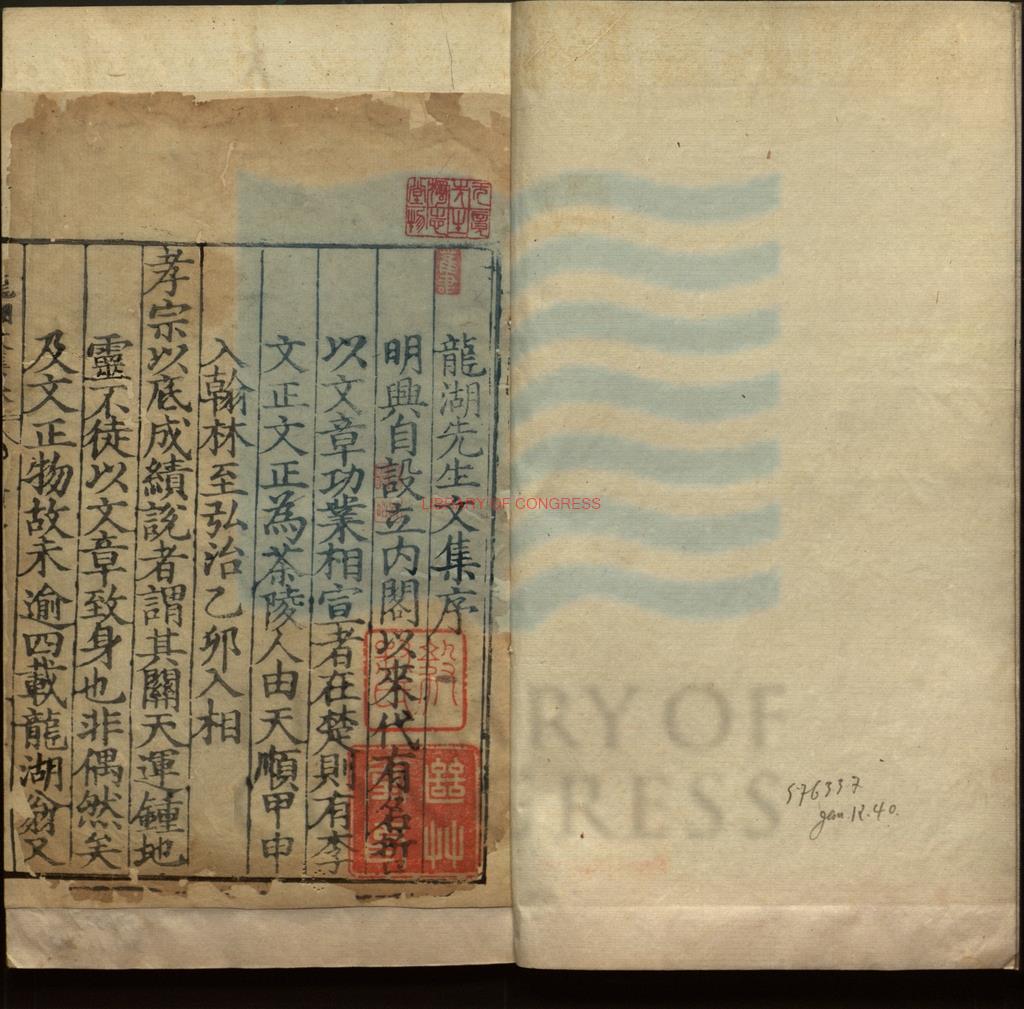 龍湖先生文集序
明興自設立内閣以來代有名
以文章功業相宣者在楚則有李
文正文正為茶陵人由天順甲申
入翰林至弘治乙卯入相
孝宗以底成績說者謂其關天運鍾地
靈不徒以文章致身也非偶然矣
及文正物故未逾四載龍湖翁又
LIBRARY OF CONGRESS
RY OF
CRESS
576337
Jan. 12. 40.